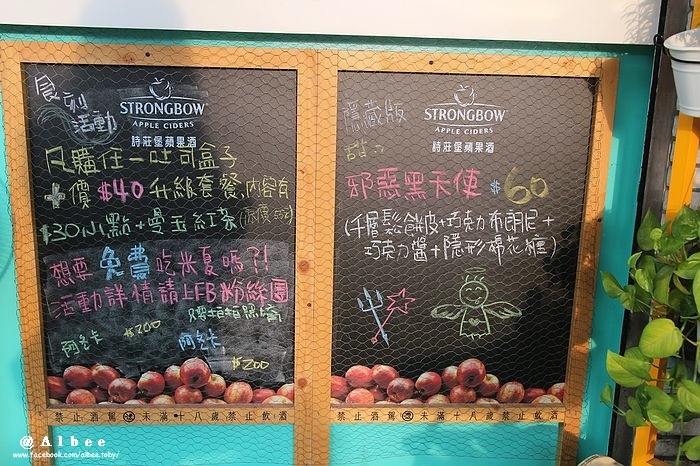 食刻
活動
STRONGBOW
APPLE CIDERS
詩莊堡蘋果酒
凡購任一吐司盒子
+價 $40 升級套餐,內容有
$30小點+曼玉紅茶
想要免費吃米夏嗎?!
活動詳情請上FB粉絲團
阿	$200
$200
禁止酒駕 未滿十八歲禁止飲酒
隱藏版
甜
STRONGBOW
APPLE CIDERS
詩莊堡蘋果酒
邪惡黑天使 $60
(千層鬆餅皮+巧克力布朗尼+
巧克力醬+隱形棉花糖)
禁止酒駕 未滿十八歲禁止飲酒
@Albee
www.facebook.com/albee.toby/